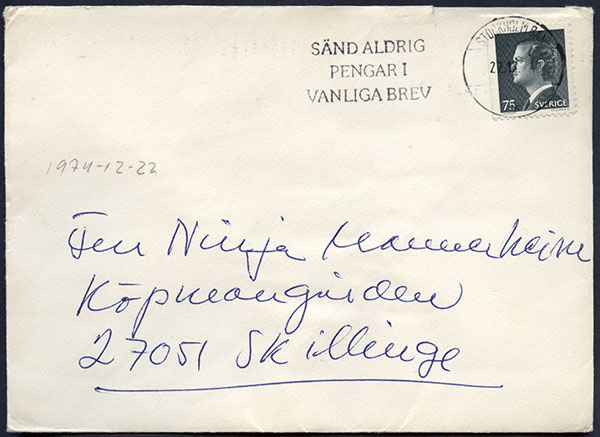 SÄND ALDRIG
PENGAR I
VANLIGA BREV
STOCKHOLM
22 12
75 SVERIGE
1974-12-22
Fru Ninja Mannerheim
Köpmangården
27051 Skillinge